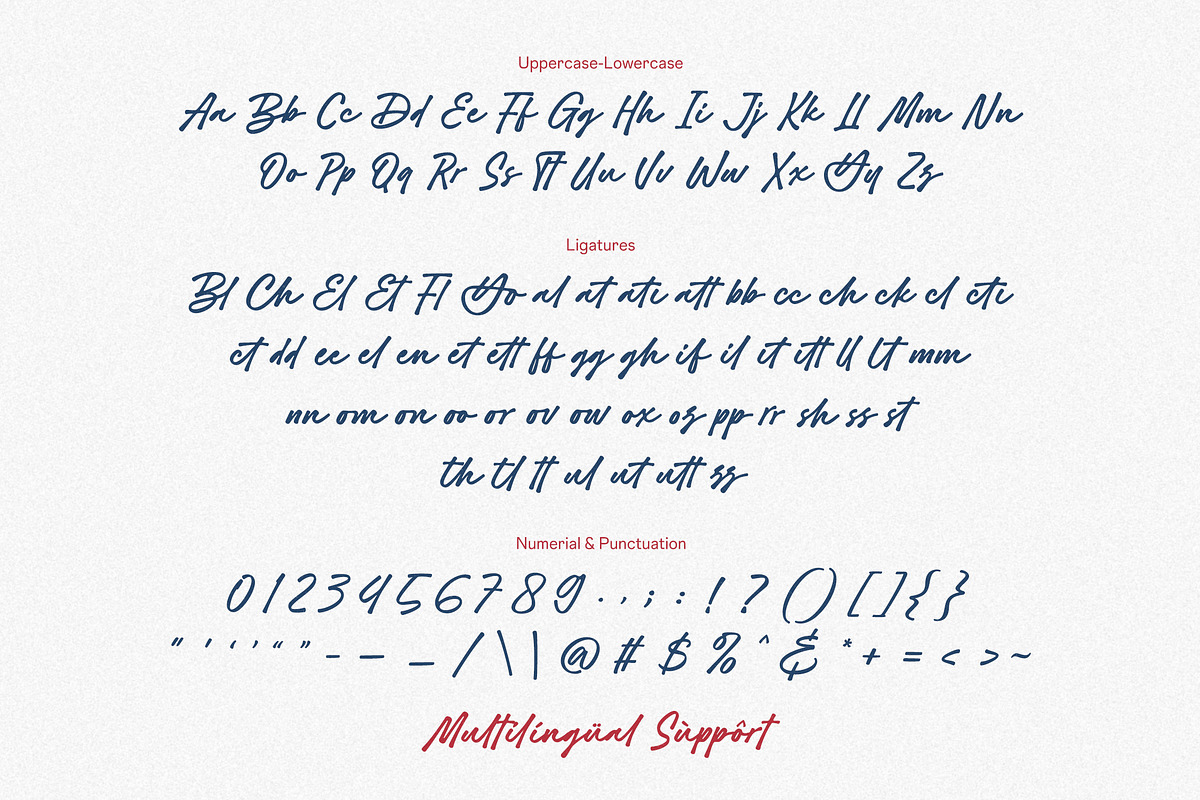 Uppercase-Lowercase
Aa Bb Cc Dd Ee Ff Gg Hh Ii Jj Kk Ll Mm Nn
Oo Pp Qq Rr Ss Tt Uu Vv Ww Xx Yy Zz
Ligatures
Bl Ch El Et Fl Yo al at ati att bb cc ch ck cl cti
ct dd ee el en et ett ff gg gh if il it itt ll lt mm
nn om on oo or ov ow ox oz pp rr sh ss st
th tl tt ul ut utt zz
Numerial & Punctuation
0 1 2 3 4 5 6 7 8 9 . , ; : ! ? ( ) [ ] { }
" ' ‘ ’ “ ” - – _ / \ | @ # $ % ^ & * + = < > ~
Multilíngüal Sùppôrt